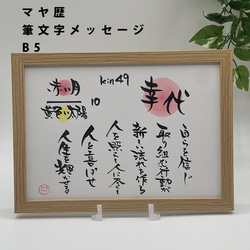 マヤ歴
筆文字メッセージ
B5
kin49
赤い月
黄色い太陽
10
幸代
自らを信じ
取り組む行動が
新しい流れを作る
人を照らし人に尽くし
人を喜ばせ
人生を輝かせる